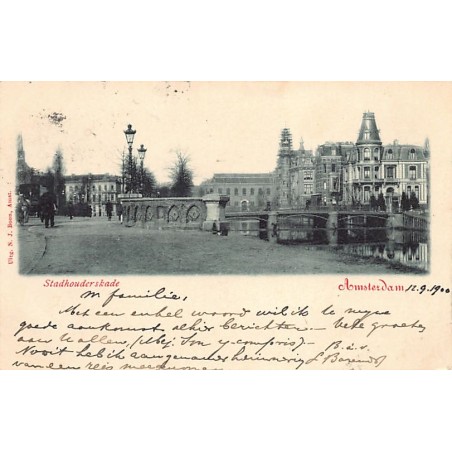 Uitg. N. J. Boon, Amst.
Stadhouderskade
Amsterdam 12.9.1900
m familie,
Met een enkel woord wil ik U mijne
goede aankomst alhier berichten. — Vele groeten
aan U allen, (Mej. Son y compris) — B. à v.
Nooit heb ik aangenamer herinnering
van een reis meegenomen